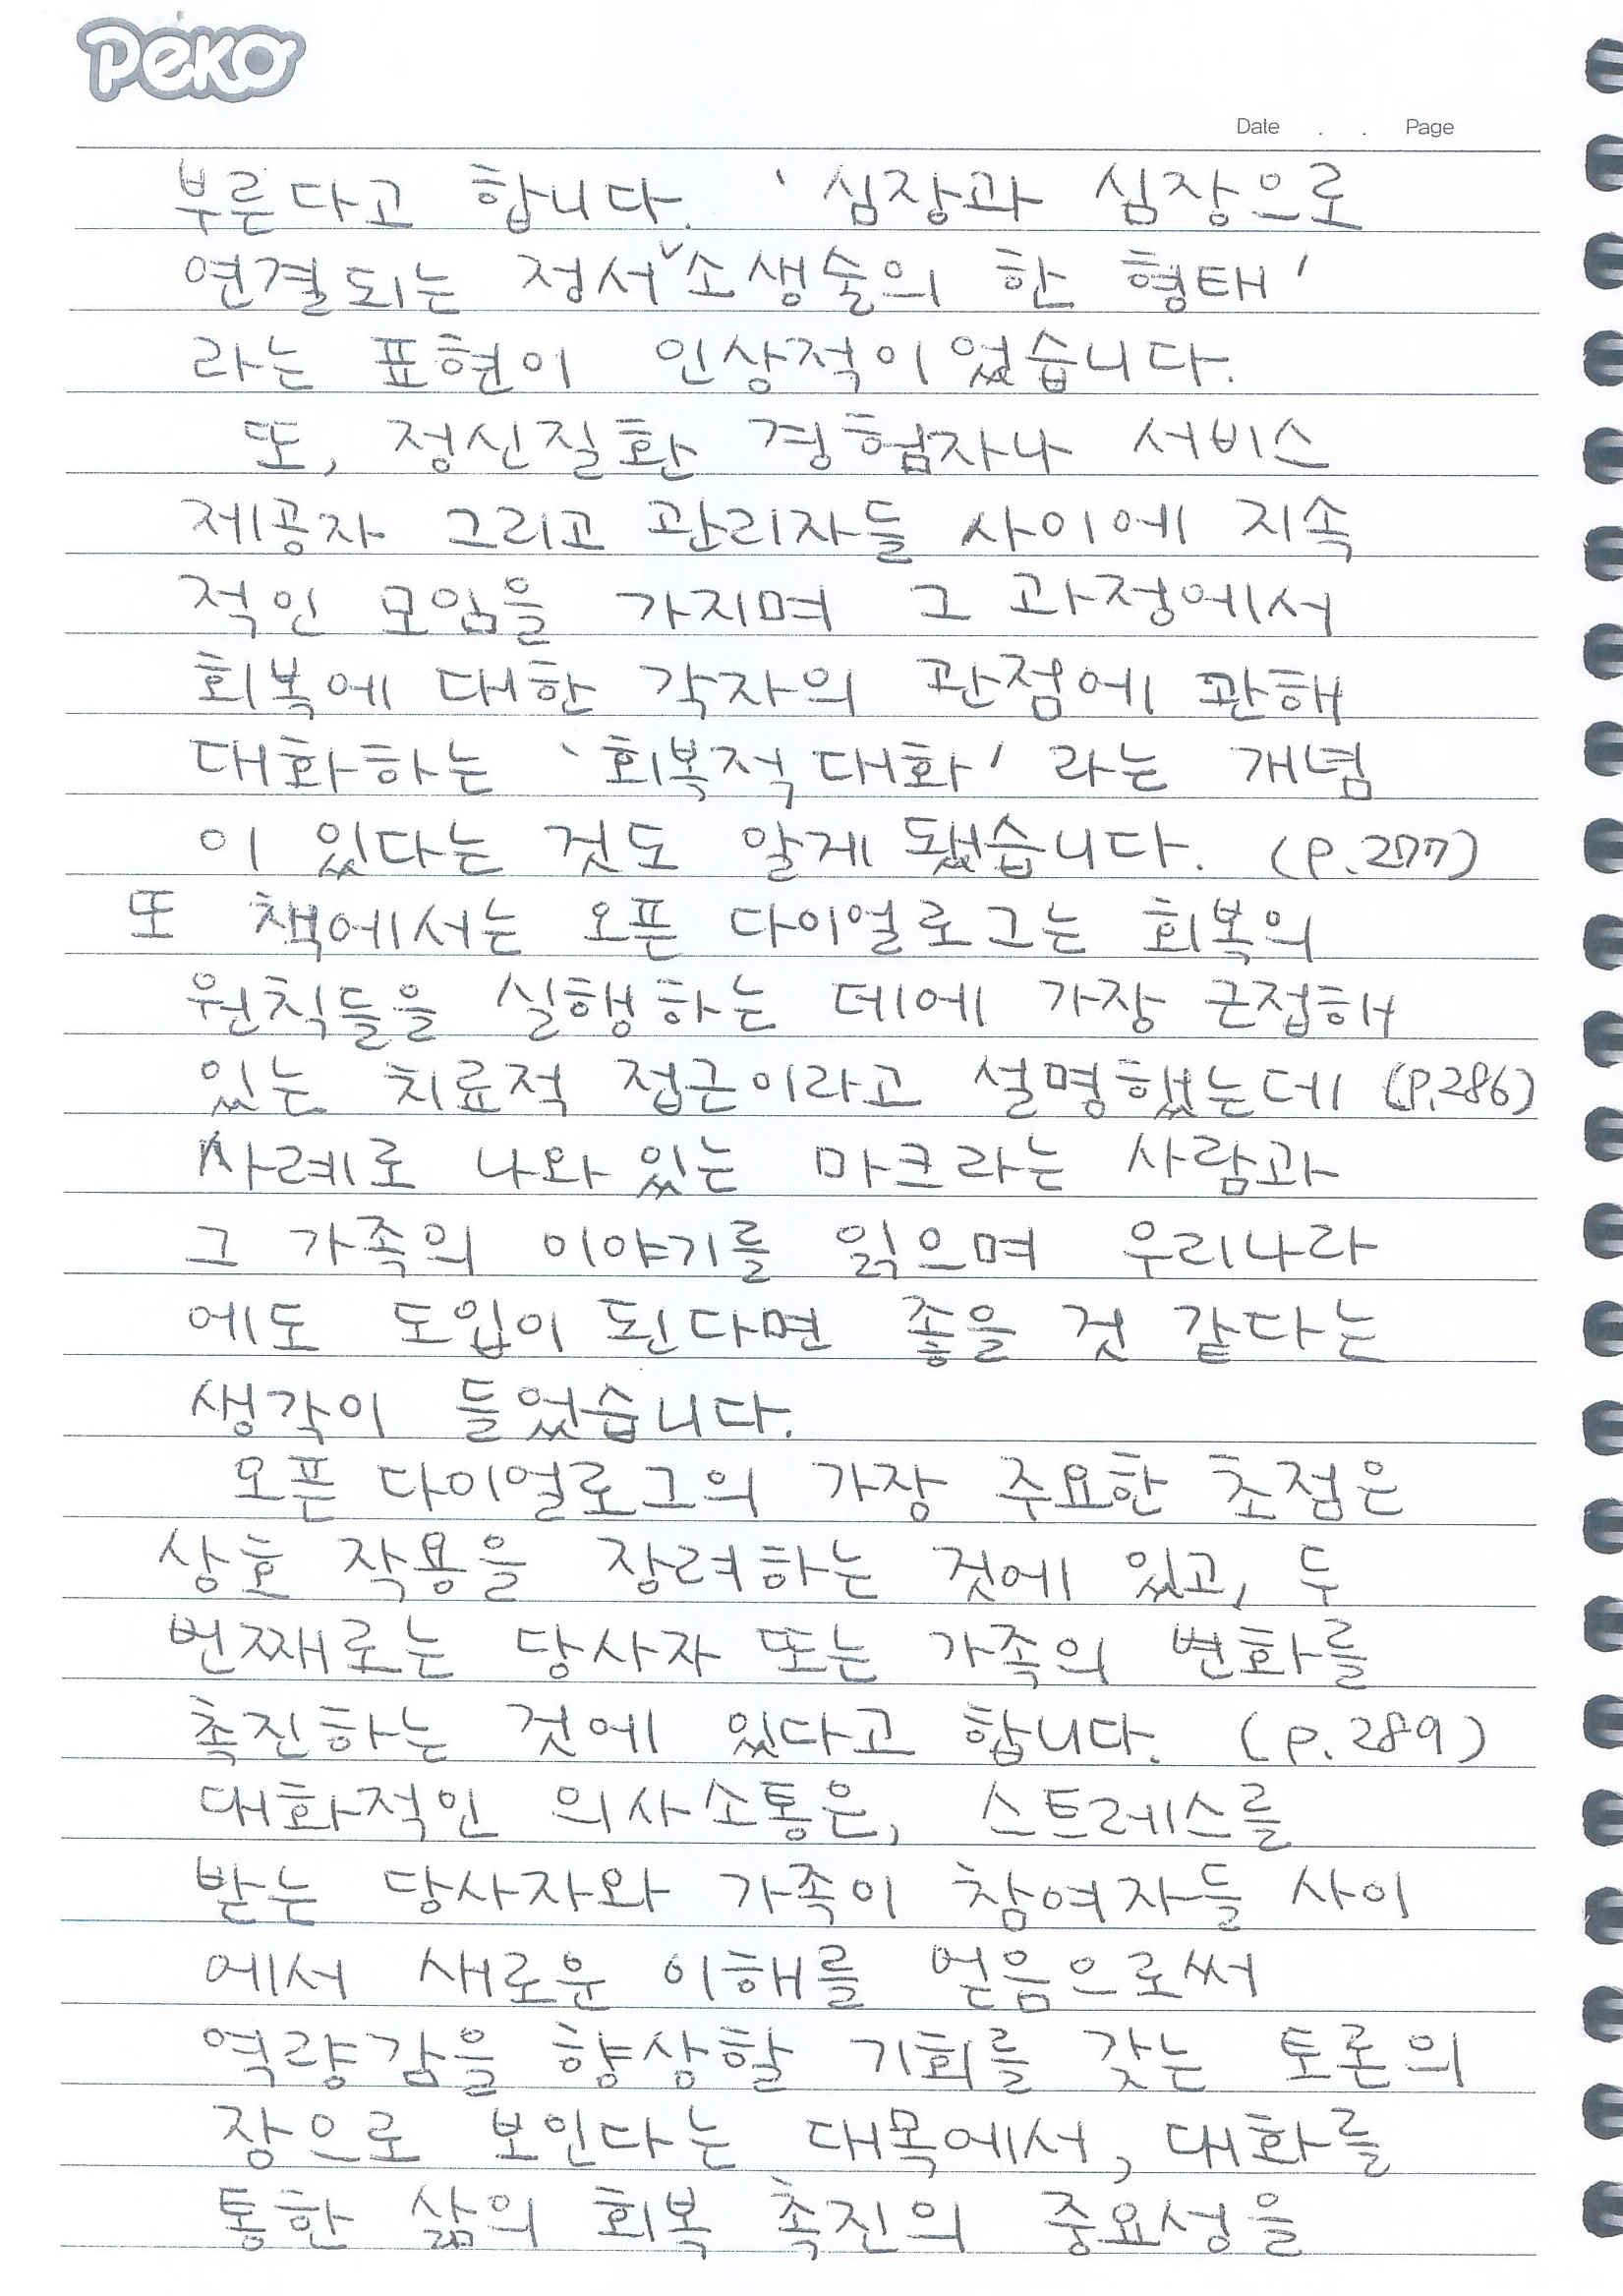 Peko
Date . . Page
부른다고 합니다. '심장과 심장으로
연결되는 정서 소생술의 한 형태'
라는 표현이 인상적이었습니다.
또, 정신질환 경험자나 서비스
제공자 그리고 관리자들 사이에 지속
적인 모임을 가지며 그 과정에서
회복에 대한 각자의 관점에 관해
대화하는 '회복적 대화' 라는 개념
이 있다는 것도 알게 됐습니다. (p.277)
또 책에서는 오픈 다이얼로그는 회복의
원칙들을 실행하는 데에 가장 근접해
있는 치료적 접근이라고 설명했는데 (p.286)
사례로 나와 있는 마크라는 사람과
그 가족의 이야기를 읽으며 우리나라
에도 도입이 된다면 좋을 것 같다는
생각이 들었습니다.
오픈 다이얼로그의 가장 주요한 초점은
상호 작용을 장려하는 것에 있고, 두
번째로는 당사자 또는 가족의 변화를
촉진하는 것에 있다고 합니다. (p.289)
대화적인 의사소통은, 스트레스를
받는 당사자와 가족이 참여자들 사이
에서 새로운 이해를 얻음으로써
역량감을 향상할 기회를 갖는 토론의
장으로 보인다는 대목에서, 대화를
통한 삶의 회복 촉진의 중요성을